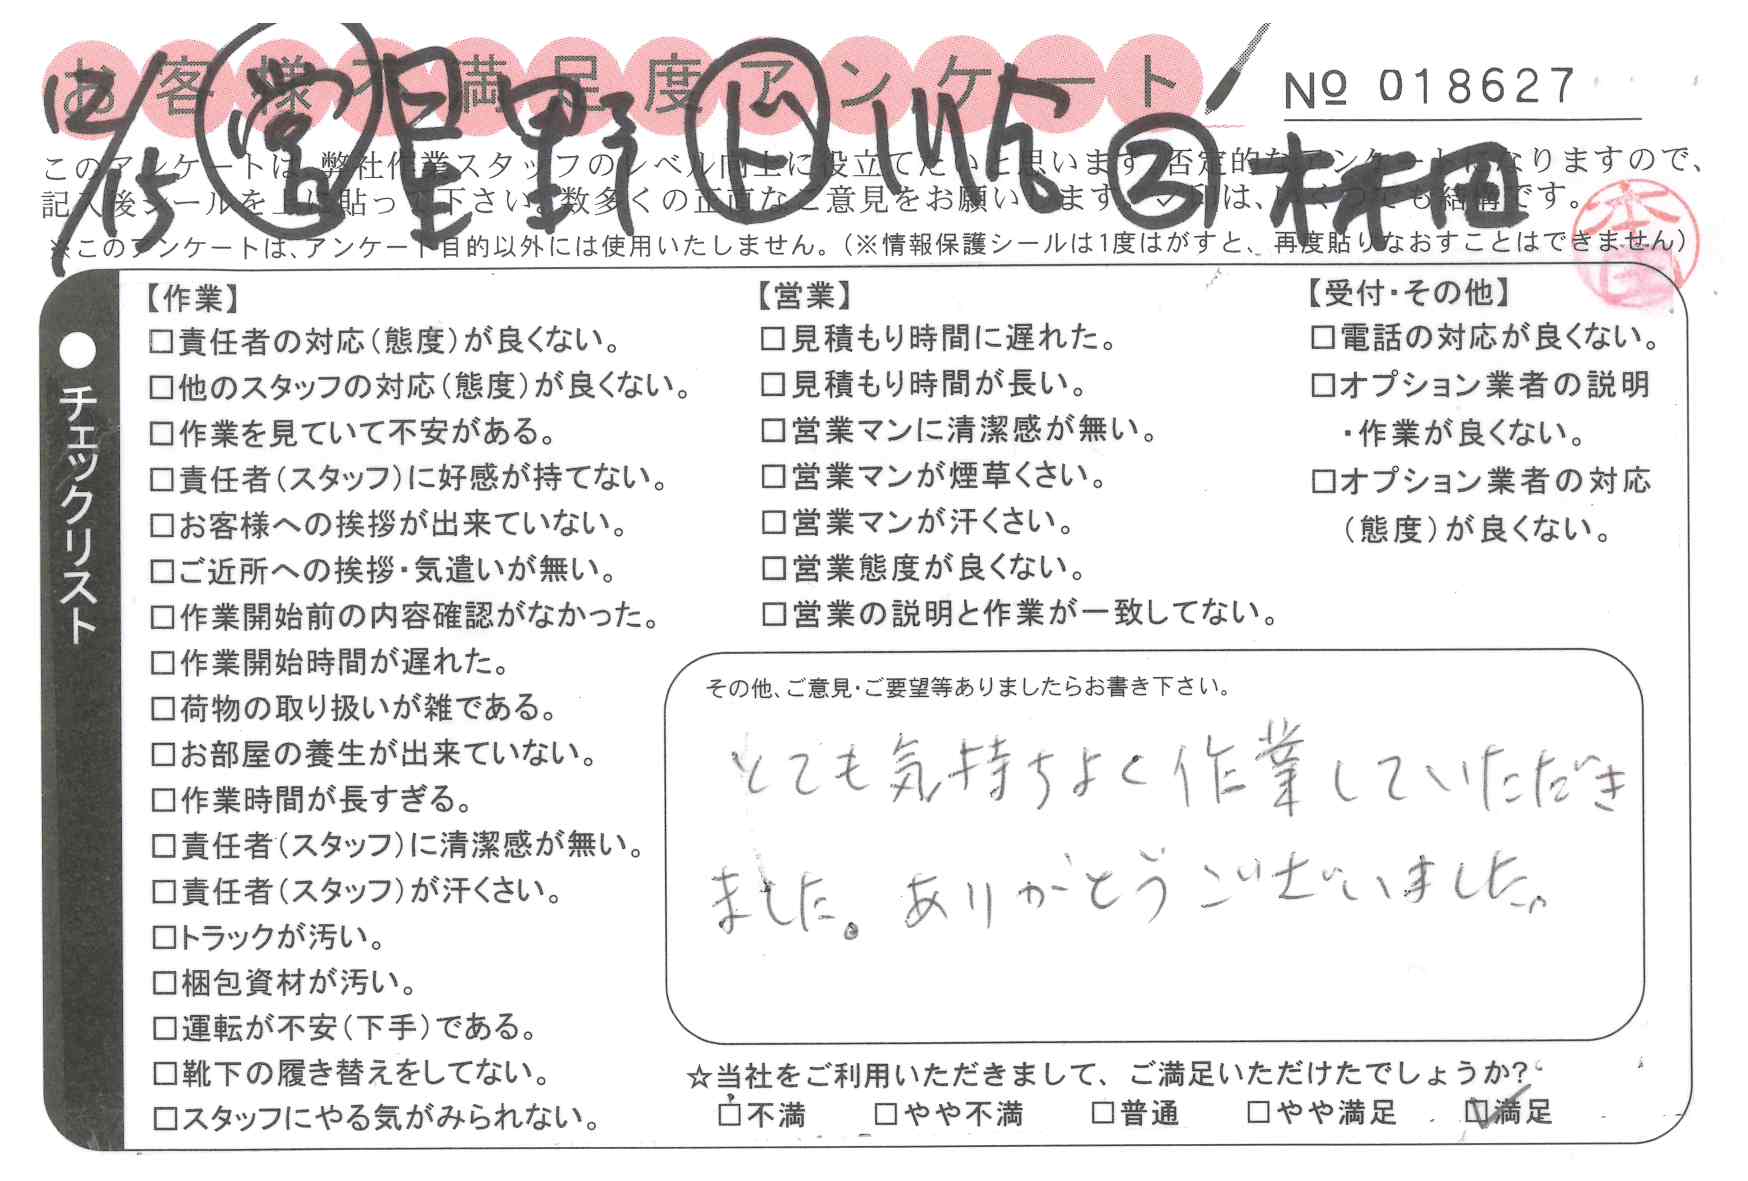 お客様不満足度アンケート
№ 018627
12/15 営 星野 ト ② 林田
このアンケートは、弊社作業スタッフのレベル向上に役立てたいと思います。否定的なアンケートになりますので、
記入後シールを上に貼って下さい。数多くの正直なご意見をお願いします。✓印は、いくつでも結構です。
※このアンケートは、アンケート目的以外には使用いたしません。(※情報保護シールは1度はがすと、再度貼りなおすことはできません)
●チェックリスト
【作業】
□責任者の対応(態度)が良くない。
□他のスタッフの対応(態度)が良くない。
□作業を見ていて不安がある。
□責任者(スタッフ)に好感が持てない。
□お客様への挨拶が出来ていない。
□ご近所への挨拶・気遣いが無い。
□作業開始前の内容確認がなかった。
□作業開始時間が遅れた。
□荷物の取り扱いが雑である。
□お部屋の養生が出来ていない。
□作業時間が長すぎる。
□責任者(スタッフ)に清潔感が無い。
□責任者(スタッフ)が汗くさい。
□トラックが汚い。
□梱包資材が汚い。
□運転が不安(下手)である。
□靴下の履き替えをしてない。
□スタッフにやる気がみられない。
【営業】
□見積もり時間に遅れた。
□見積もり時間が長い。
□営業マンに清潔感が無い。
□営業マンが煙草くさい。
□営業マンが汗くさい。
□営業態度が良くない。
□営業の説明と作業が一致してない。
【受付・その他】
□電話の対応が良くない。
□オプション業者の説明
・作業が良くない。
□オプション業者の対応
(態度)が良くない。
その他、ご意見・ご要望等ありましたらお書き下さい。
とても気持ちよく作業していただき
ました。ありがとうございました。
☆当社をご利用いただきまして、ご満足いただけたでしょうか?
□不満 □やや不満 □普通 □やや満足 ☑満足